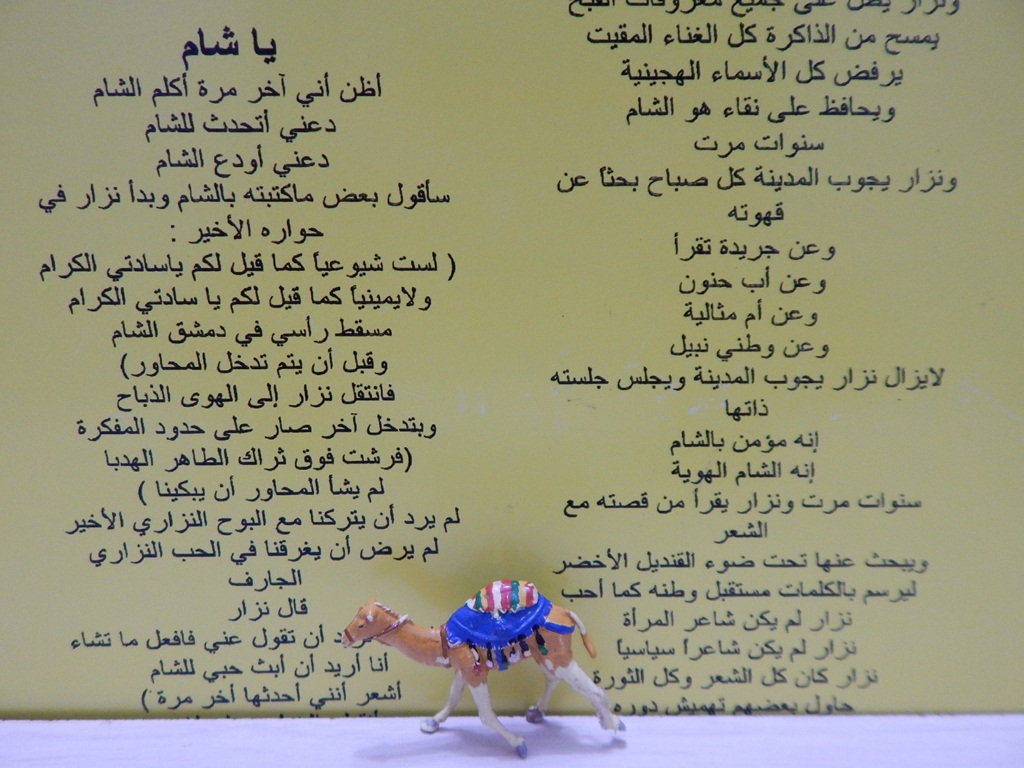 ونزار يطل على جميع معزوفات القبح
يمسح من الذاكرة كل الغناء المقيت
يرفض كل الأسماء الهجينية
ويحافظ على نقاء هو الشام
سنوات مرت
ونزار يجوب المدينة كل صباح بحثاً عن
قهوته
وعن جريدة تقرأ
وعن أب حنون
وعن أم مثالية
وعن وطني نبيل
لايزال نزار يجوب المدينة ويجلس جلسته
ذاتها
إنه مؤمن بالشام
إنه الشام الهوية
سنوات مرت ونزار يقرأ من قصته مع
الشعر
ويبحث عنها تحت ضوء القنديل الأخضر
ليرسم بالكلمات مستقبل وطنه كما أحب
نزار لم يكن شاعر المرأة
نزار لم يكن شاعراً سياسياً
نزار كان كل الشعر وكل الثورة
حاول بعضهم تهميش دوره
يا شام
أظن أني آخر مرة أكلم الشام
دعني أتحدث للشام
دعني أودع الشام
سأقول بعض ماكتبته بالشام وبدأ نزار في
حواره الأخير :
( لست شيوعياً كما قيل لكم ياسادتي الكرام
ولايمينياً كما قيل لكم يا سادتي الكرام
مسقط رأسي في دمشق الشام
وقبل أن يتم تدخل المحاور)
فانتقل نزار إلى الهوى الذباح
وبتدخل آخر صار على حدود المفكرة
(فرشت فوق ثراك الطاهر الهدبا
لم يشأ المحاور أن يبكينا )
لم يرد أن يتركنا مع البوح النزاري الأخير
لم يرض أن يغرقنا في الحب النزاري
الجارف
قال نزار
أن تقول عني فافعل ما تشاء
أنا أريد أن أبث حبي للشام
أشعر أنني أحدثها أخر مرة )